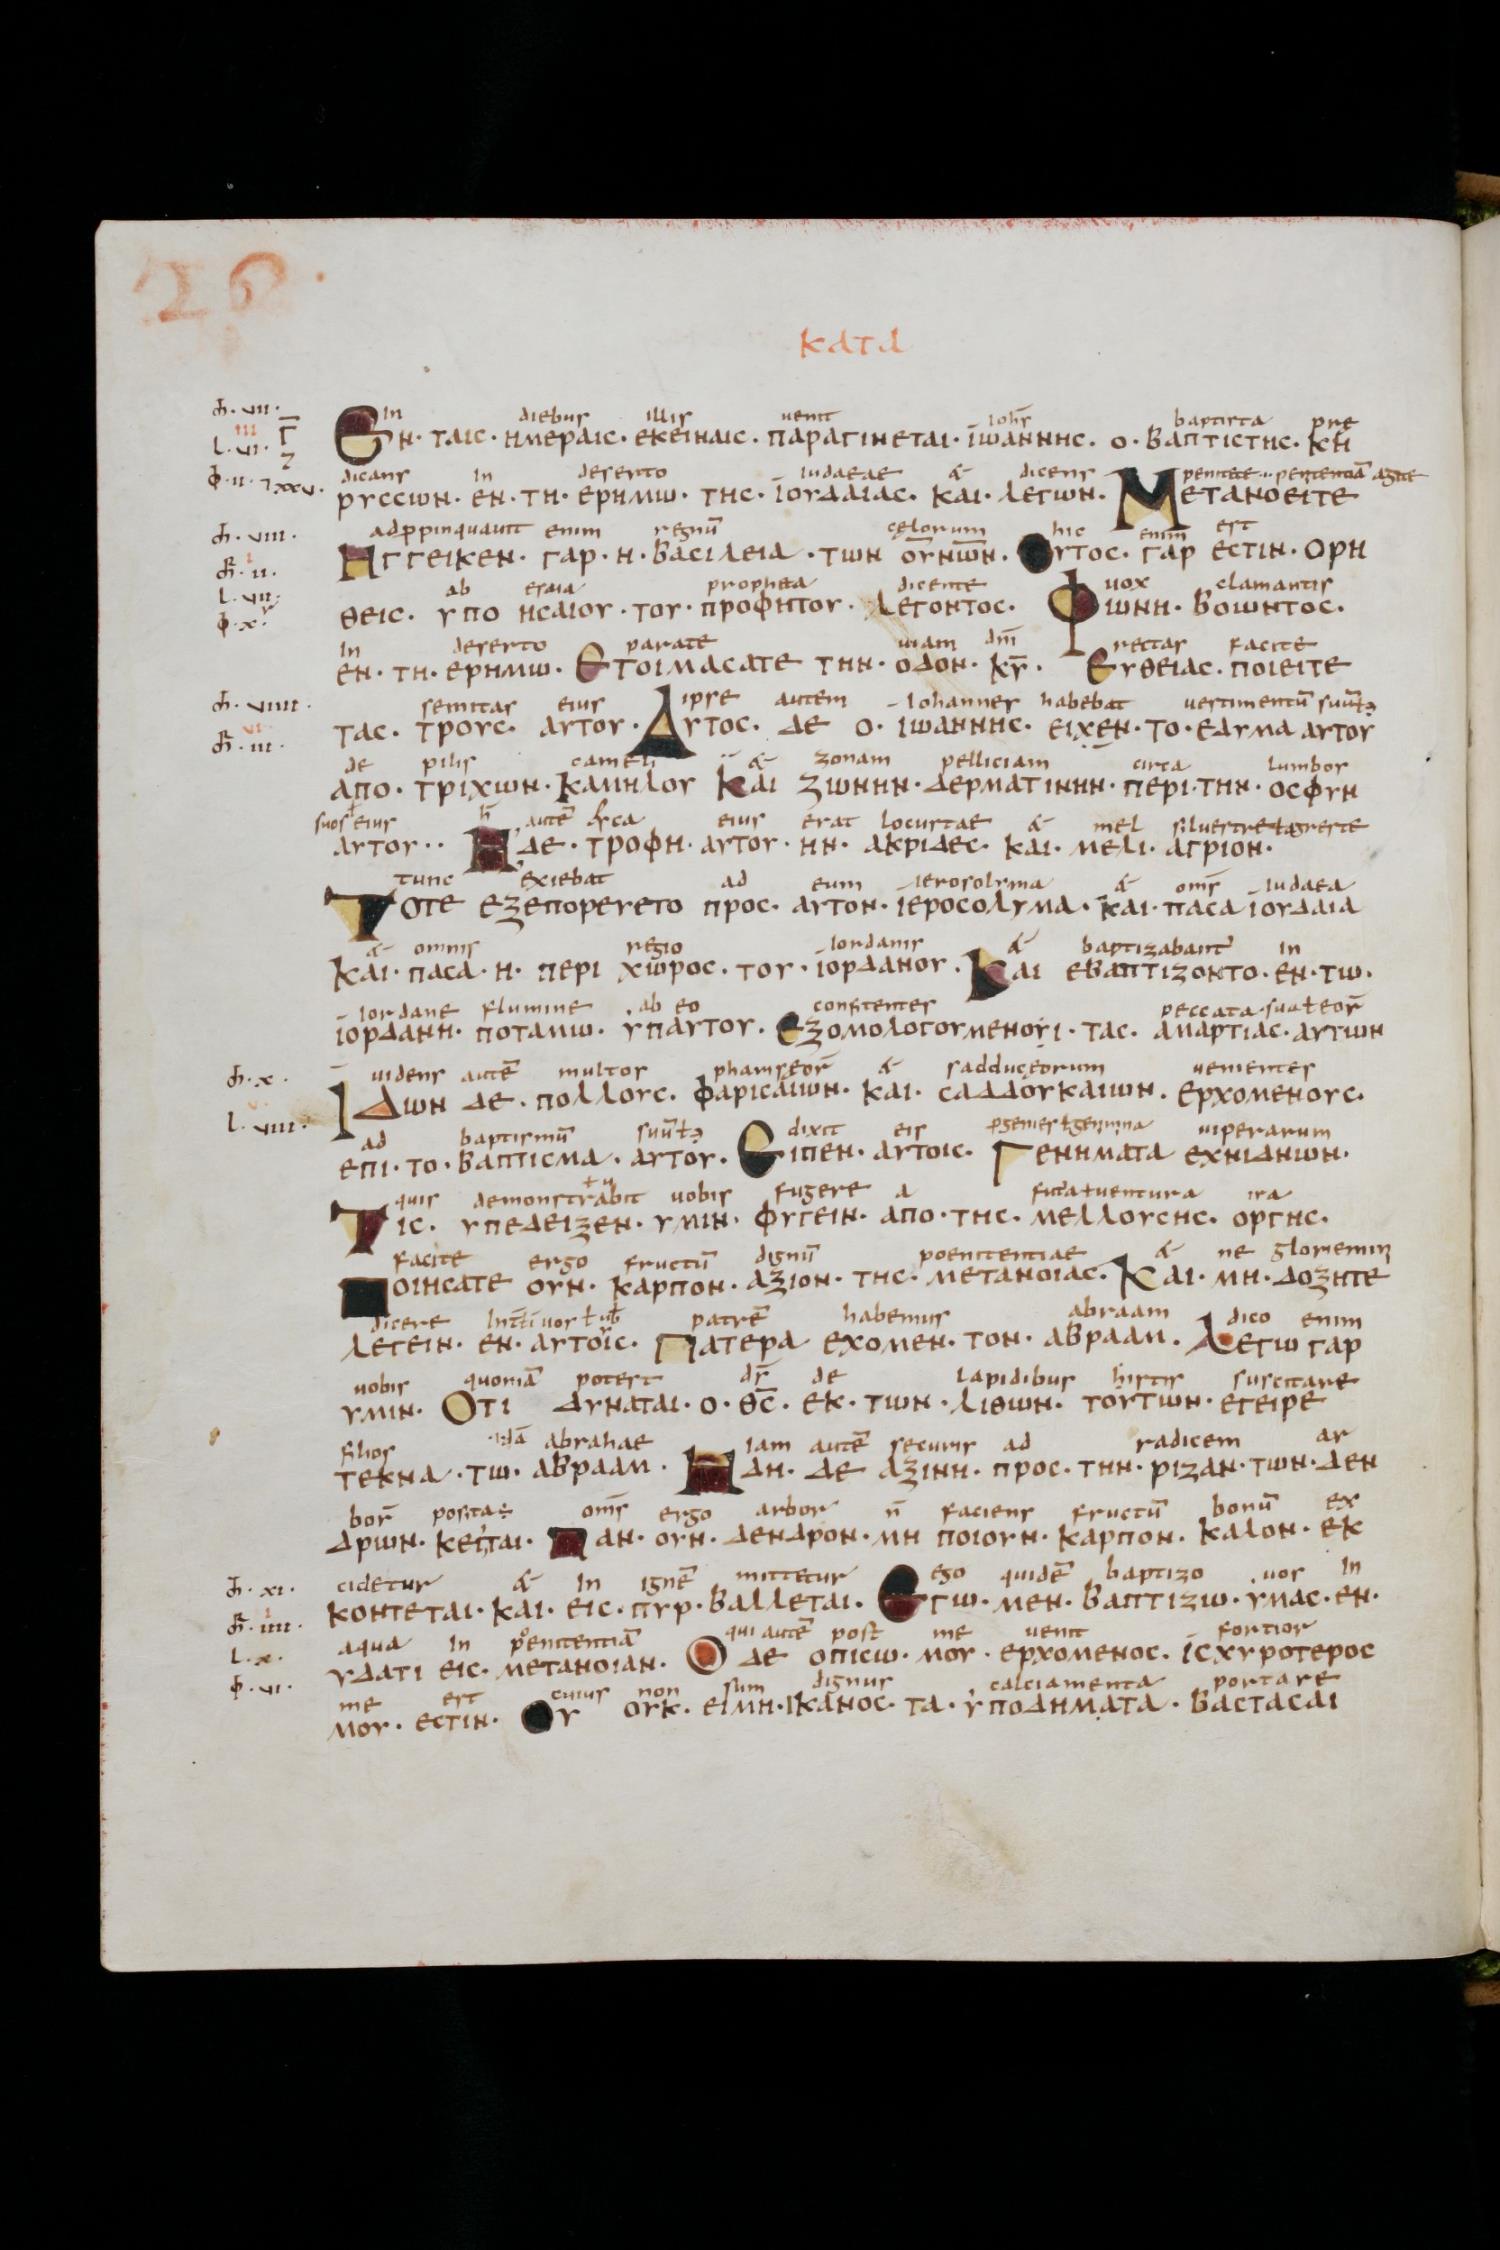 26.
ΚΑΤΑ
in diebus illis uenit iohs̄ baptista pre
ΕΝ· ΤΑΙC· ΗΜΕΡΑΙC· ΕΚΕΙΝΑΙC· ΠΑΡΑΓΙΝΕΤΑΙ· ΙΩΑΝΝΗC· Ο· ΒΑΠΤΙCΤΗC· ΚΗ
dicans in deserto iudaeae & dicens penitete penitentiā agite
ΡΥCCΩΝ· ΕΝ· ΤΗ· ΕΡΗΜΩ· ΤΗC· ΙΟΥΔΑΙΑC· ΚΑΙ· ΛΕΓΩΝ· ΜΕΤΑΝΟΕΙΤΕ
adpropinquauit enim regnū cęlorum hic enim est
ΗΓΓΕΙΚΕΝ· ΓΑΡ· Η· ΒΑCΙΛΕΙΑ· ΤΩΝ ΟΥΝΩΝ· ΟΥΤΟC· ΓΑΡ ΕCΤΙΝ· ΟΡΗ
ab esaia propheta dicente uox clamantis
ΘΕΙC· ΥΠΟ ΗCΑΙΟΥ· ΤΟΥ· ΠΡΟΦΗΤΟΥ· ΛΕΓΟΝΤΟC· ΦΩΝΗ· ΒΟΩΝΤΟC·
in deserto parate uiam dn̄i rectas facite
ΕΝ· ΤΗ· ΕΡΗΜΩ· ΕΤΟΙΜΑCΑΤΕ ΤΗΝ· ΟΔΟΝ· ΚΥ· ΕΥΘΕΙΑC· ΠΟΙΕΙΤΕ
semitas eius ipse autem iohannes habebat uestimentū suū
ΤΑC· ΤΡΟΥC· ΑΥΤΟΥ· ΑΥΤΟC· ΔΕ Ο· ΙΩΑΝΝΗC· ΕΙΧΕΝ· ΤΟ· ΕΔΥΜΑ ΑΥΤΟΥ
de pilis cameli & zonam pelliciam circa lumbos
ΑΠΟ· ΤΡΙΧΩΝ· ΚΑΜΗΛΟΥ ΚΑΙ ΖΩΝΗΝ· ΔΕΡΜΑΤΙΝΗΝ· ΠΕΡΙ· ΤΗΝ· ΟCΦΥΝ
suos eius autē esca eius erat locustae & mel siluestre ł agreste
ΑΥΤΟΥ·· Η ΔΕ· ΤΡΟΦΗ· ΑΥΤΟΥ· ΗΝ· ΑΚΡΙΔΕC· ΚΑΙ· ΜΕΛΙ· ΑΓΡΙΟΝ·
tunc exiebat ad eum ierosolyma & omīs iudaea
ΤΟΤΕ ΕΞΕΠΟΡΕΥΕΤΟ ΠΡΟC· ΑΥΤΟΝ· ΙΕΡΟCΟΛΥΜΑ· ΚΑΙ· ΠΑCΑ ΙΟΥΔΑΙΑ
& omnis regio iordanis & baptizabant in
ΚΑΙ· ΠΑCΑ· Η· ΠΕΡΙ ΧΩΡΟC· ΤΟΥ· ΙΟΡΔΑΝΟΥ· ΚΑΙ ΕΒΑΠΤΙΖΟΝΤΟ· ΕΝ· ΤΩ·
iordane flumine ab eo confitentes peccata sua ł eor̄
ΙΟΡΔΑΝΗ· ΠΟΤΑΜΩ· ΥΠΑΥΤΟΥ· ΕΞΟΜΟΛΟΓΟΥΜΕΝΟΥΙ· ΤΑC· ΑΜΑΡΤΙΑC· ΑΥΤΩΝ
uidens autē multos pharisęor̄ & sadducęorum uenientes
ΙΔΩΝ ΔΕ· ΠΟΛΛΟΥC· ΦΑΡΙCΑΙΩΝ· ΚΑΙ· CΑΔΔΟΥΚΑΙΩΝ· ΕΡΧΟΜΕΝΟΥC·
ad baptismū suū dixit eis genimina uiperarum
ΕΠΙ· ΤΟ· ΒΑΠΤΙCΜΑ· ΑΥΤΟΥ· ΕΙΠΕΝ· ΑΥΤΟΙC· ΓΕΝΗΜΑΤΑ ΕΧΝΙΔΝΩΝ·
quis demonstrabit uobis fugere a futura ł uentura ira
ΤΙC· ΥΠΕΔΕΙΞΕΝ· ΥΜΙΝ· ΦΥΓΕΙΝ· ΑΠΟ· ΤΗC· ΜΕΛΛΟΥCΗC· ΟΡΓΗC·
facite ergo fructū dignū poenitentiae & ne
ΠΟΙΗCΑΤΕ ΟΥΝ· ΚΑΡΠΟΝ· ΑΞΙΟΝ· ΤΗC· ΜΕΤΑΝΟΙΑC· ΚΑΙ· ΜΗ· ΔΟΞΗΤΕ
dicere patrē habemus abraam dico enim
ΛΕΓΕΙΝ· ΕΝ· ΑΥΤΟΙC· ΠΑΤΕΡΑ ΕΧΟΜΕΝ· ΤΟΝ· ΑΒΡΑΑΜ· ΛΕΓΩ ΓΑΡ
uobis quoniā potest ds̄ de lapidibus histis suscitare
ΥΜΙΝ· ΟΤΙ ΔΥΝΑΤΑΙ· Ο· ΘC· ΕΚ· ΤΩΝ· ΛΙΘΩΝ· ΤΟΥΤΩΝ· ΕΓΕΙΡΕ
filios abrahae iam autē securis ad radicem ar
ΤΕΚΝΑ· ΤΩ· ΑΒΡΑΑΜ· ΗΔΗ· ΔΕ ΑΞΙΝΗ· ΠΡΟC· ΤΗΝ· ΡΙΖΑΝ· ΤΩΝ· ΔΕΝ
bor̄ posita ÷ omīs ergo arbor n̄ faciens fructū bonū ex
ΔΡΩΝ· ΚΕΙΤΑΙ· ΠΑΝ· ΟΥΝ· ΔΕΝΔΡΟΝ· ΜΗ ΠΟΙΟΥΝ· ΚΑΡΠΟΝ· ΚΑΛΟΝ· ΕΚ
cidetur & in ignē mittetur ego quidē baptizo uos in
ΚΟΝΤΕΤΑΙ· ΚΑΙ· ΕΙC· ΠΥΡ· ΒΑΛΛΕΤΑΙ· ΕΓΩ· ΜΕΝ· ΒΑΠΤΙΖΩ· ΥΜΑC· ΕΝ·
aqua in poenitentiā qui autē post me uenit fortior
ΥΔΑΤΙ ΕΙC· ΜΕΤΑΝΟΙΑΝ· Ο ΔΕ ΟΠΙCΩ· ΜΟΥ· ΕΡΧΟΜΕΝΟC· ΙCΧΥΡΟΤΕΡΟC
me est cuius non sum dignus calciamenta portare
ΜΟΥ· ΕCΤΙΝ· ΟΥ ΟΥΚ· ΕΙΜΗ· ΙΚΑΝΟC· ΤΑ· ΥΠΟΔΗΜΑΤΑ· ΒΑCΤΑCΑΙ